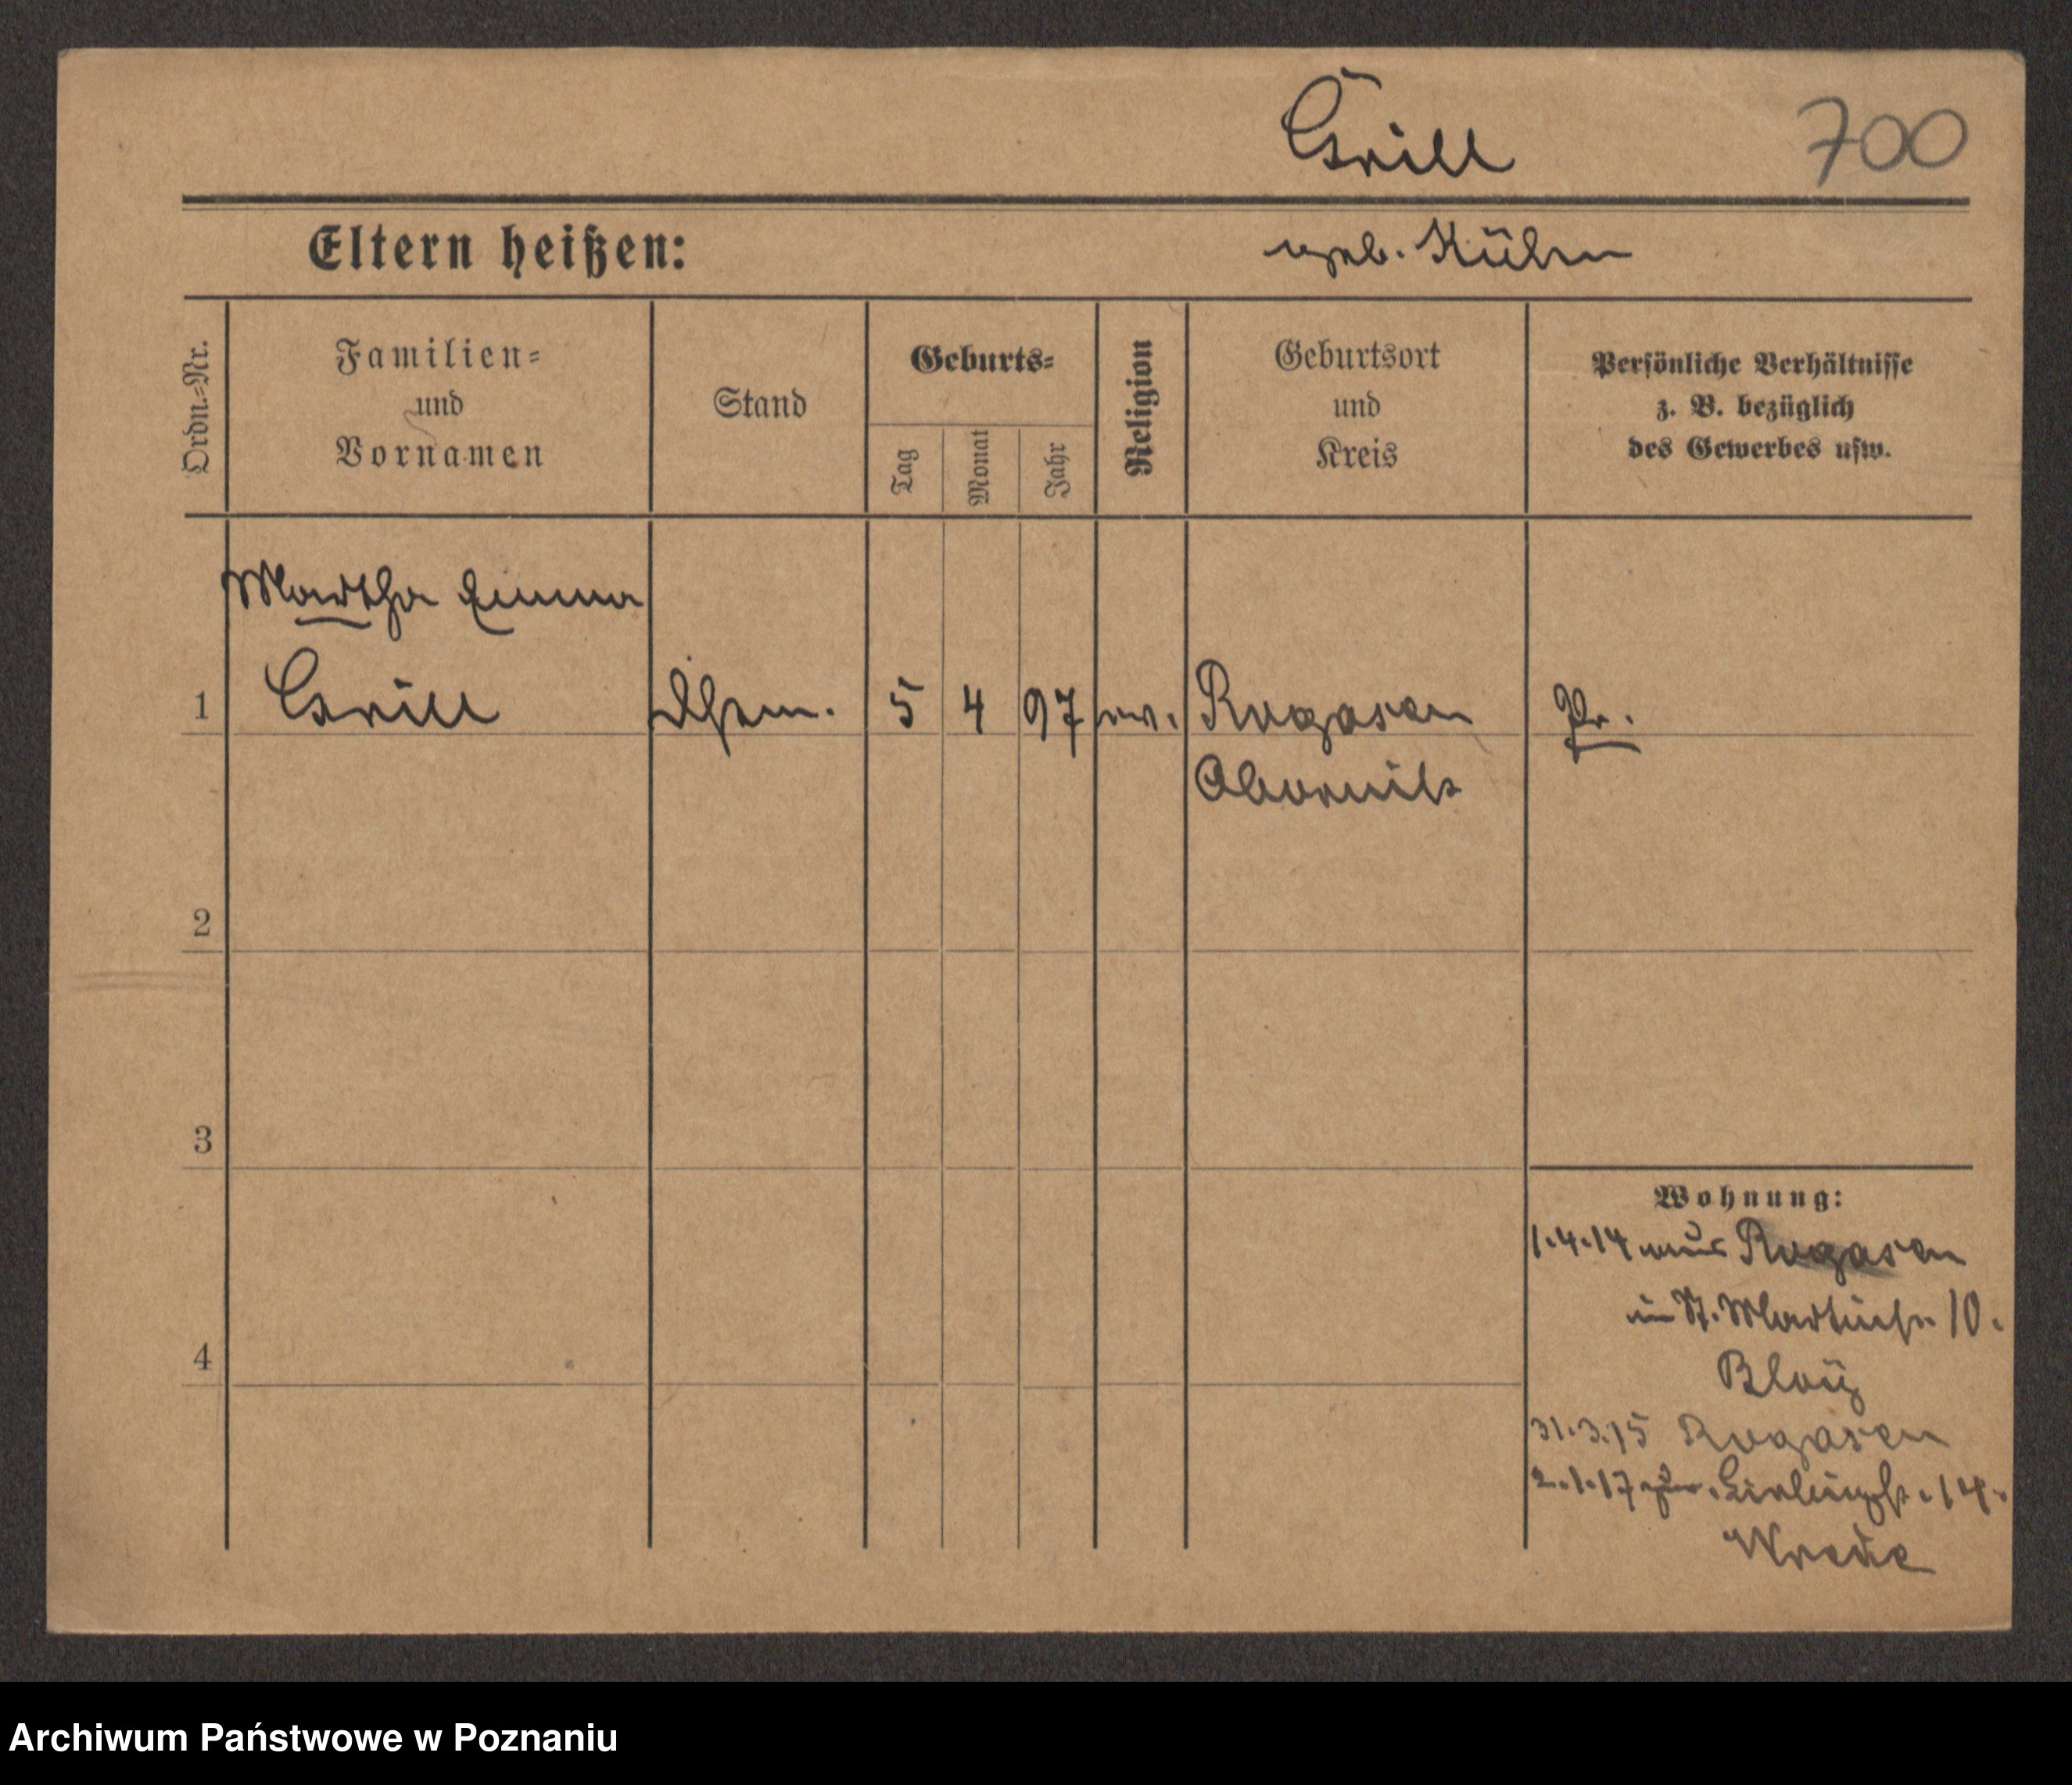 Grill 700
Eltern heißen: geb. Kühn
Ordn.-Nr. Familien- und Vornamen Stand Geburts- Tag Monat Jahr Religion Geburtsort und Kreis Persönliche Verhältnisse z. B. bezüglich des Gewerbes usw.
Martha Emma
1 Grill 5 4 97 ev. Rogasen Pr.
Obornik
2
3
Wohnung:
1.4.14 aus Rogasen
in St. Martinstr. 10.
4
31.3.15 Rogasen
2.1.17 14.
Archiwum Państwowe w Poznaniu